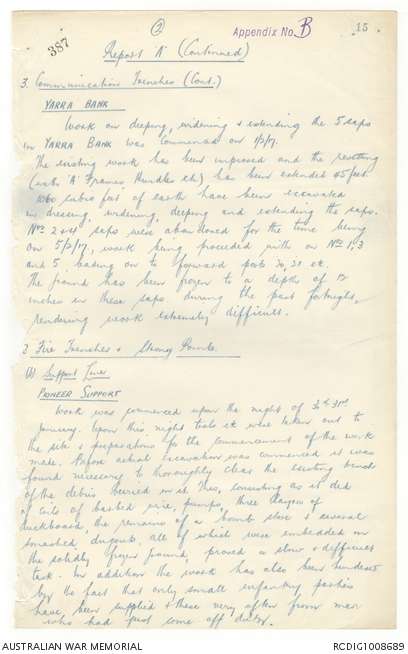 387
(2)
Appendix No. B
15
Report "A" (Continued)
3. Communication Trenches (Cont.)
YARRA BANK
Work on deeping, widening & extending the 5 saps
in YARRA BANK was commenced on 1/2/17.
The existing work has been improved and the revetting
(with "A" Frames, Hurdles etc) has been extended 65 feet.
1060 cubic feet of earth have been excavated
in dressing, widening, deeping and extending the saps.
Nos 2 & 4 saps were abandoned for the time being
on 5/2/17, work being proceeded with on Nos 1, 3
and 5 leading on to forward posts 30, 31 etc.
The ground has been frozen to a depths of 12
inches in these saps during the past fortnight,
rendering work extremely difficult.
2 Fire Trenches & Strong Points.
(a) Support Lines
PIONEER SUPPORT
Work was commenced upon the night of 30th 31st
January. Upon this night tools etc were taken out to
the site & preparations for the commencement of the work
made. Before actual excavation was commenced it was
found necessary to thoroughly clear the existing trench
of the debris buried in it. This, consisting as it did
of coils of barbed wire, pumps, three layers of
duckboards, the remains of a bomb store & several
smashed dugouts, all of which were imbedded in
the solidly frozen ground, proved a slow & difficult
task. In addition the work has also been hindered
by the fact that only small infantry parties
have been supplied & these very often from men
who had just come off duty.
AUSTRALIAN WAR MEMORIAL
RCDIG1008689